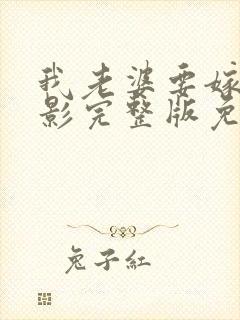 我老婆要嫁
影完整版免
兔子红